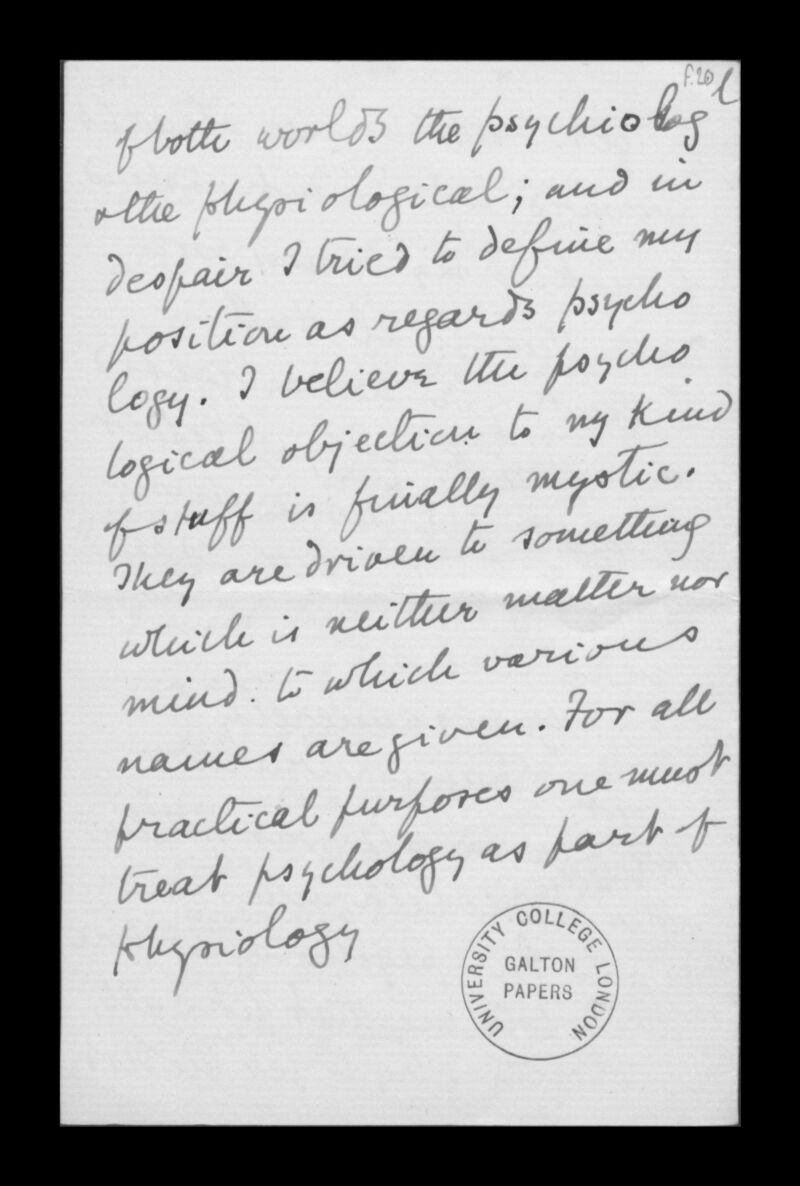 f.20
of both worlds the psychiological
& the physiological; and in
despair I tried to define my
position as regards psycho
logy. I believe the psycho
logical objection to my kind
of stuff is finally mystic.
They are driven to something
which is neither matter nor
mind. to which various
names are given. For all
practical purposes one must
treat psychology as part of
physiology
UNIVERSITY COLLEGE LONDON
GALTON
PAPERS